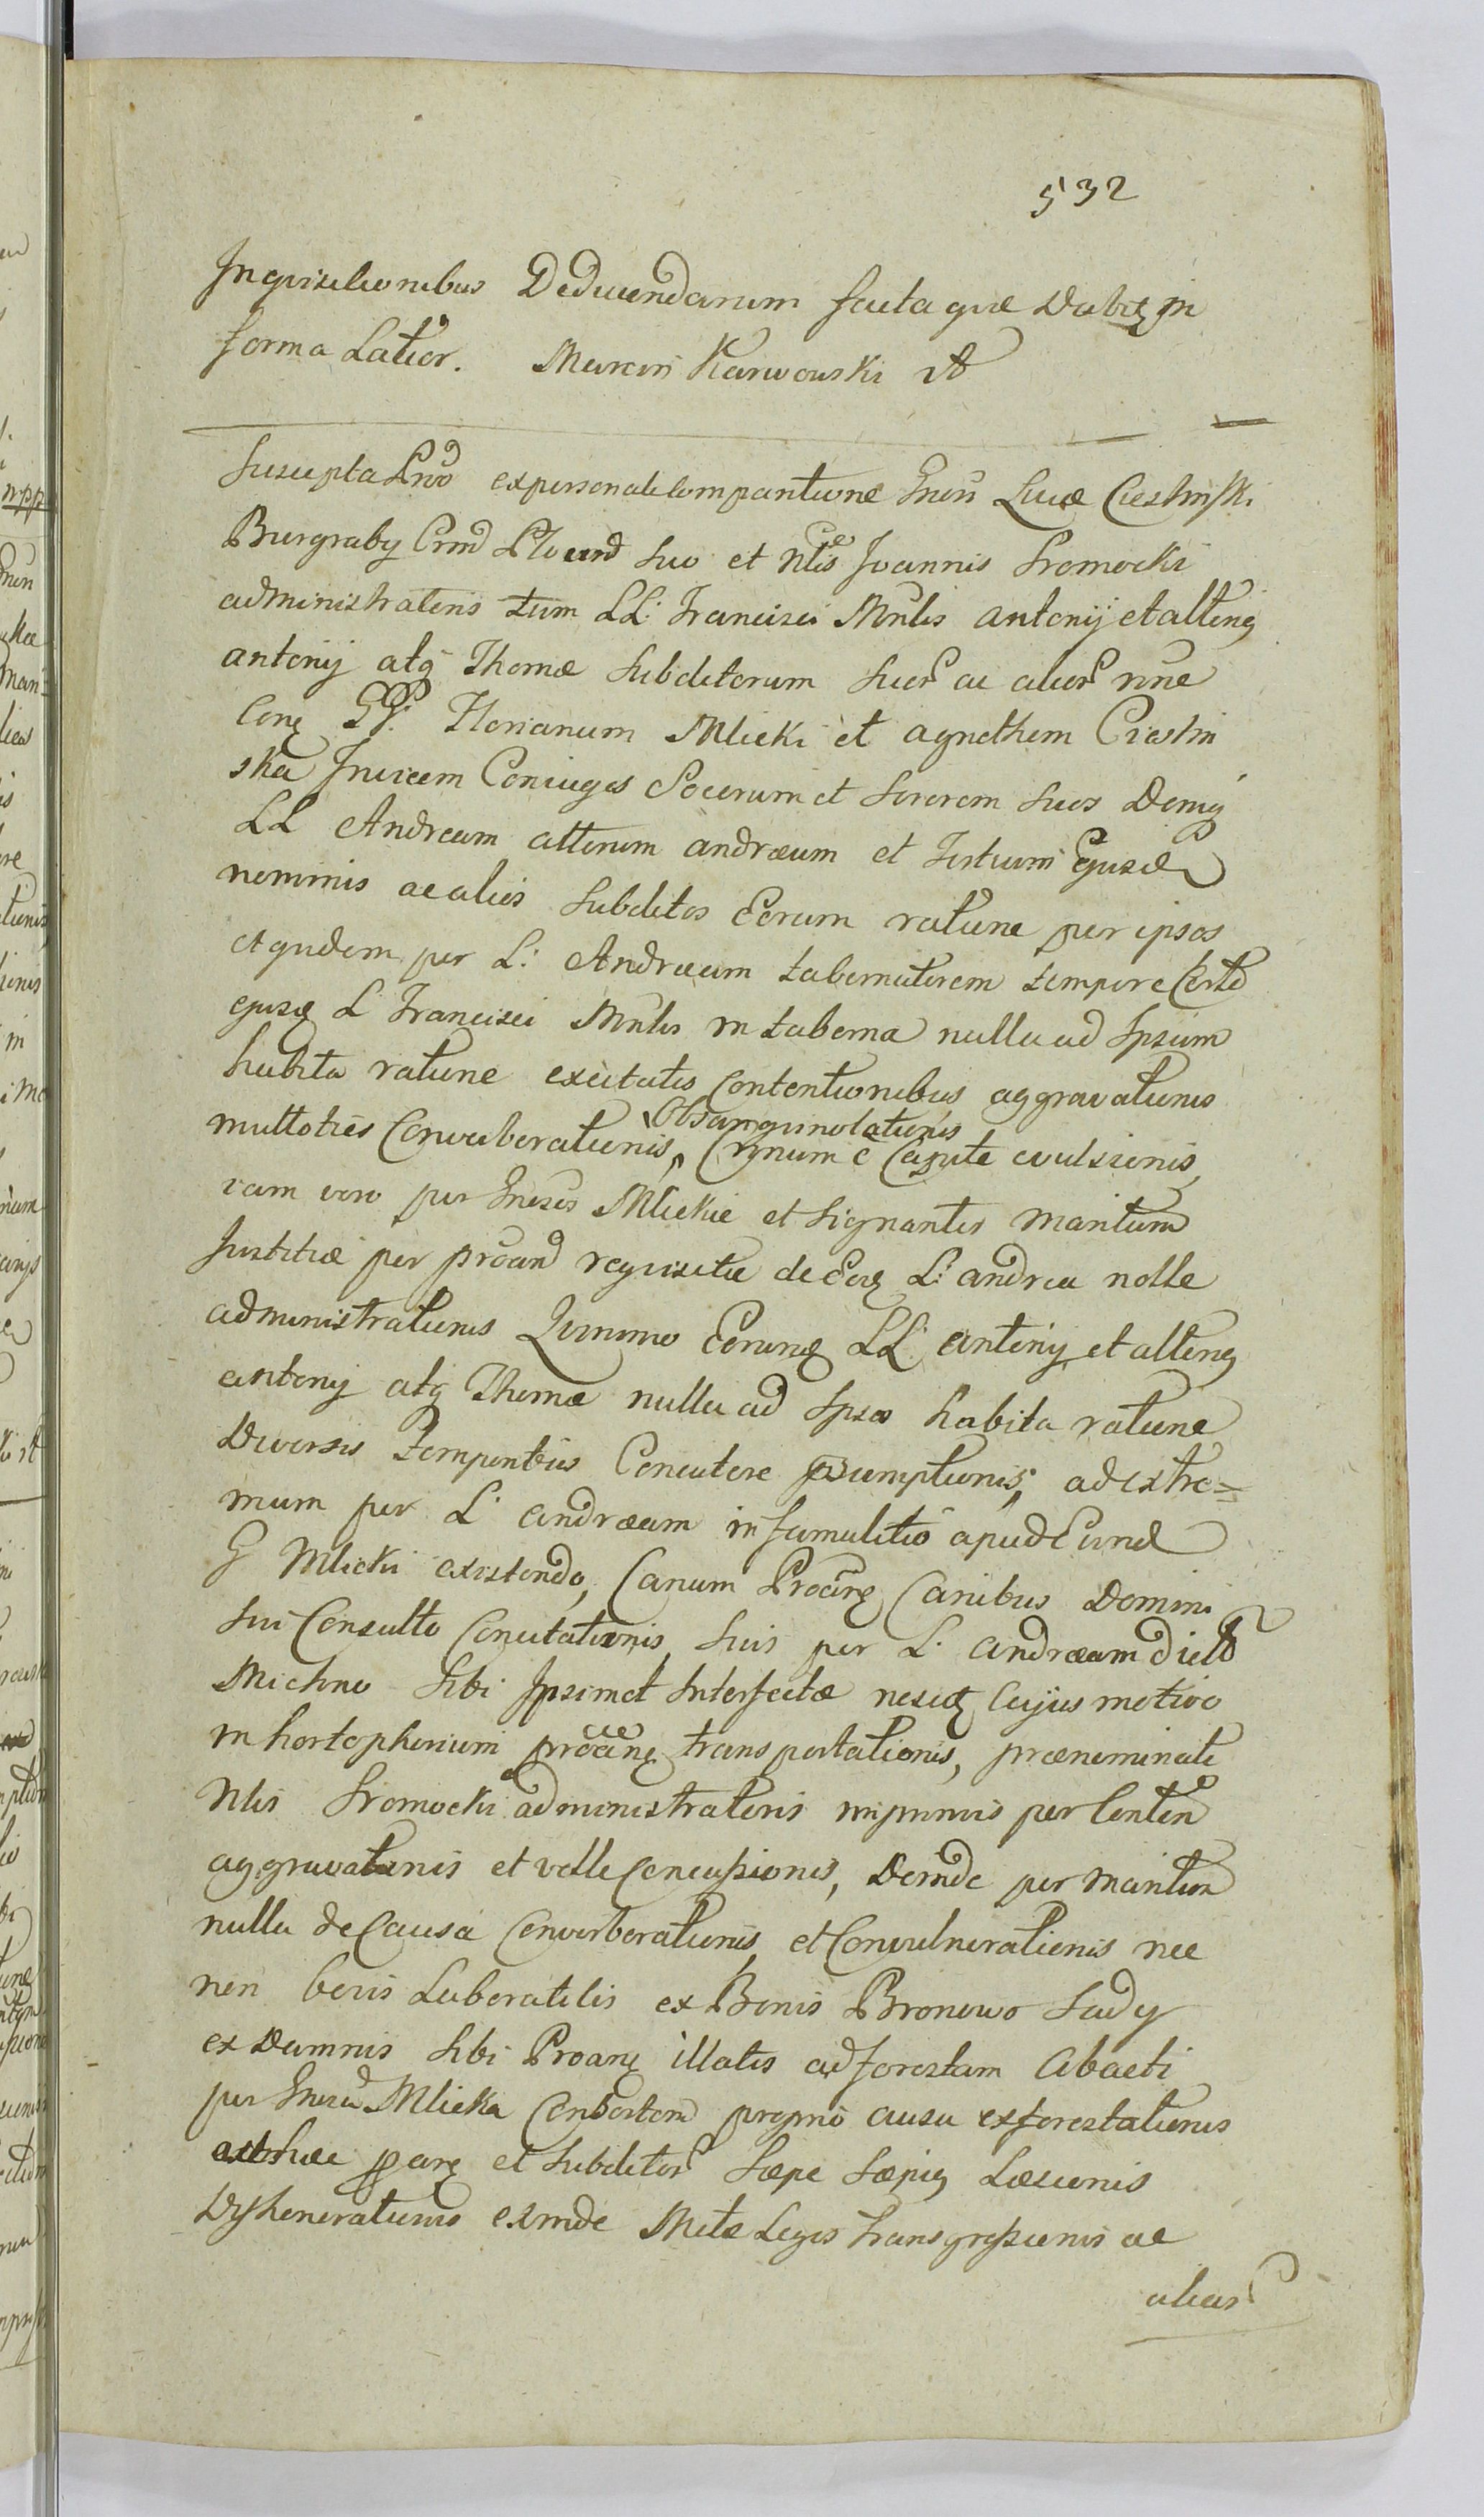 532
Inquisitionibus Deducendarum facta que Dabit in
forma Latior. Marcin Karwowski
Suscepta ex personali Comparitione Gnosi Lucae Ciestinski
Burgraby Crmd suo et Nlis Joannis Sromocki
administratoris tum LL: Francisci Mnlis antonij et alterig
antonij atq Thomae Subditorum suor ac alior nne
Conq GG: Florianum Mlicki et agnethem Ciestin
ska Invicem Coniuges Socerum et Sororem suos Deniq
LL Andream alterum andraeum et Tertium Ejusd
nominis ac alios Subditos Eorum ratione per ipsos
et quidem per L: Andraeum tabernatorem tempore Certo
ejusq L Francisci Mnlis in taberna nulla ad Ipsum
habita ratione excitatis Contentionibus aggravationis
multoties Converberationis, Obsanguinolationis
Crinum e Capite evulsionis,
iam vero per Gnosos Mlickie et signantes Maritum
Justitiae per proand requisitae de Eoq L: andrea nolle
administrationis Quinimo Eorunq LL antonij et alterig
antonij atq Thomae nulla ad Ipsos habita ratione
Diversis Temporibus Concutere praesumptionis, ad extre=
mum per L: andraeam in famulitio apud Eund
G Mlicki existendo, Canum Proanq Canibus Domini
sui Consulto Concitationis, suis per L. andraeam dict
Michno sibi Ipsimet Interfectae nescitq Cujus motivo
in hortopherium proanq transportationis, praenominati
Nlis Sromocki administratoris inprimis per Conten
aggravationis et velle Concussionis, Deinde per Maritum
nulla de Causa Converberationis, et Convulnerationis nec
non bovis Laboratilis ex Bonis Bronowo Sady
ex Damnis sibi Proanq illatis ad forestam Abacti
per Gnosa Mlicka Consortem proprio ausu exforestationis
adhaec et Subditor Saepe Saepiq Laesionis
Dyshonorationis exinde Metae Legis transgressionis ac
alior